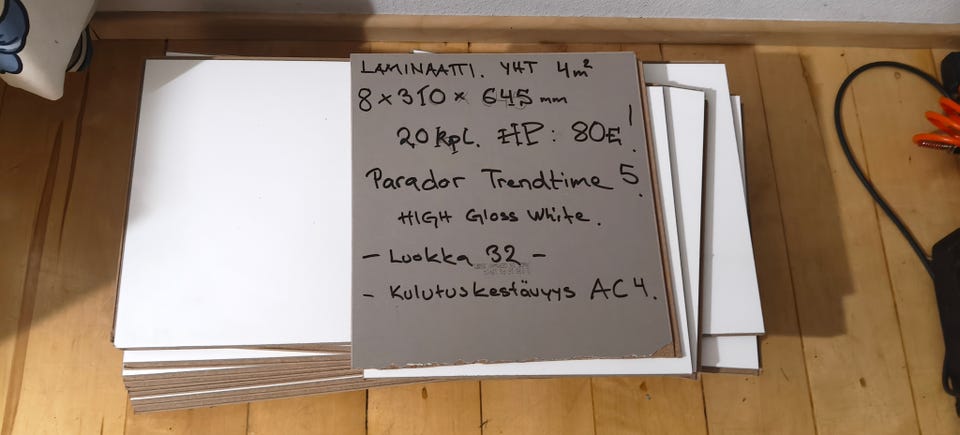 LAMINAATTI. YHT 4m²
8 x 310 x 645 mm
20 kpl. HP: 80€!
Parador Trendtime 5
HIGH Gloss White.
- Luokka 32 -
- Kulutuskestävyys AC4.